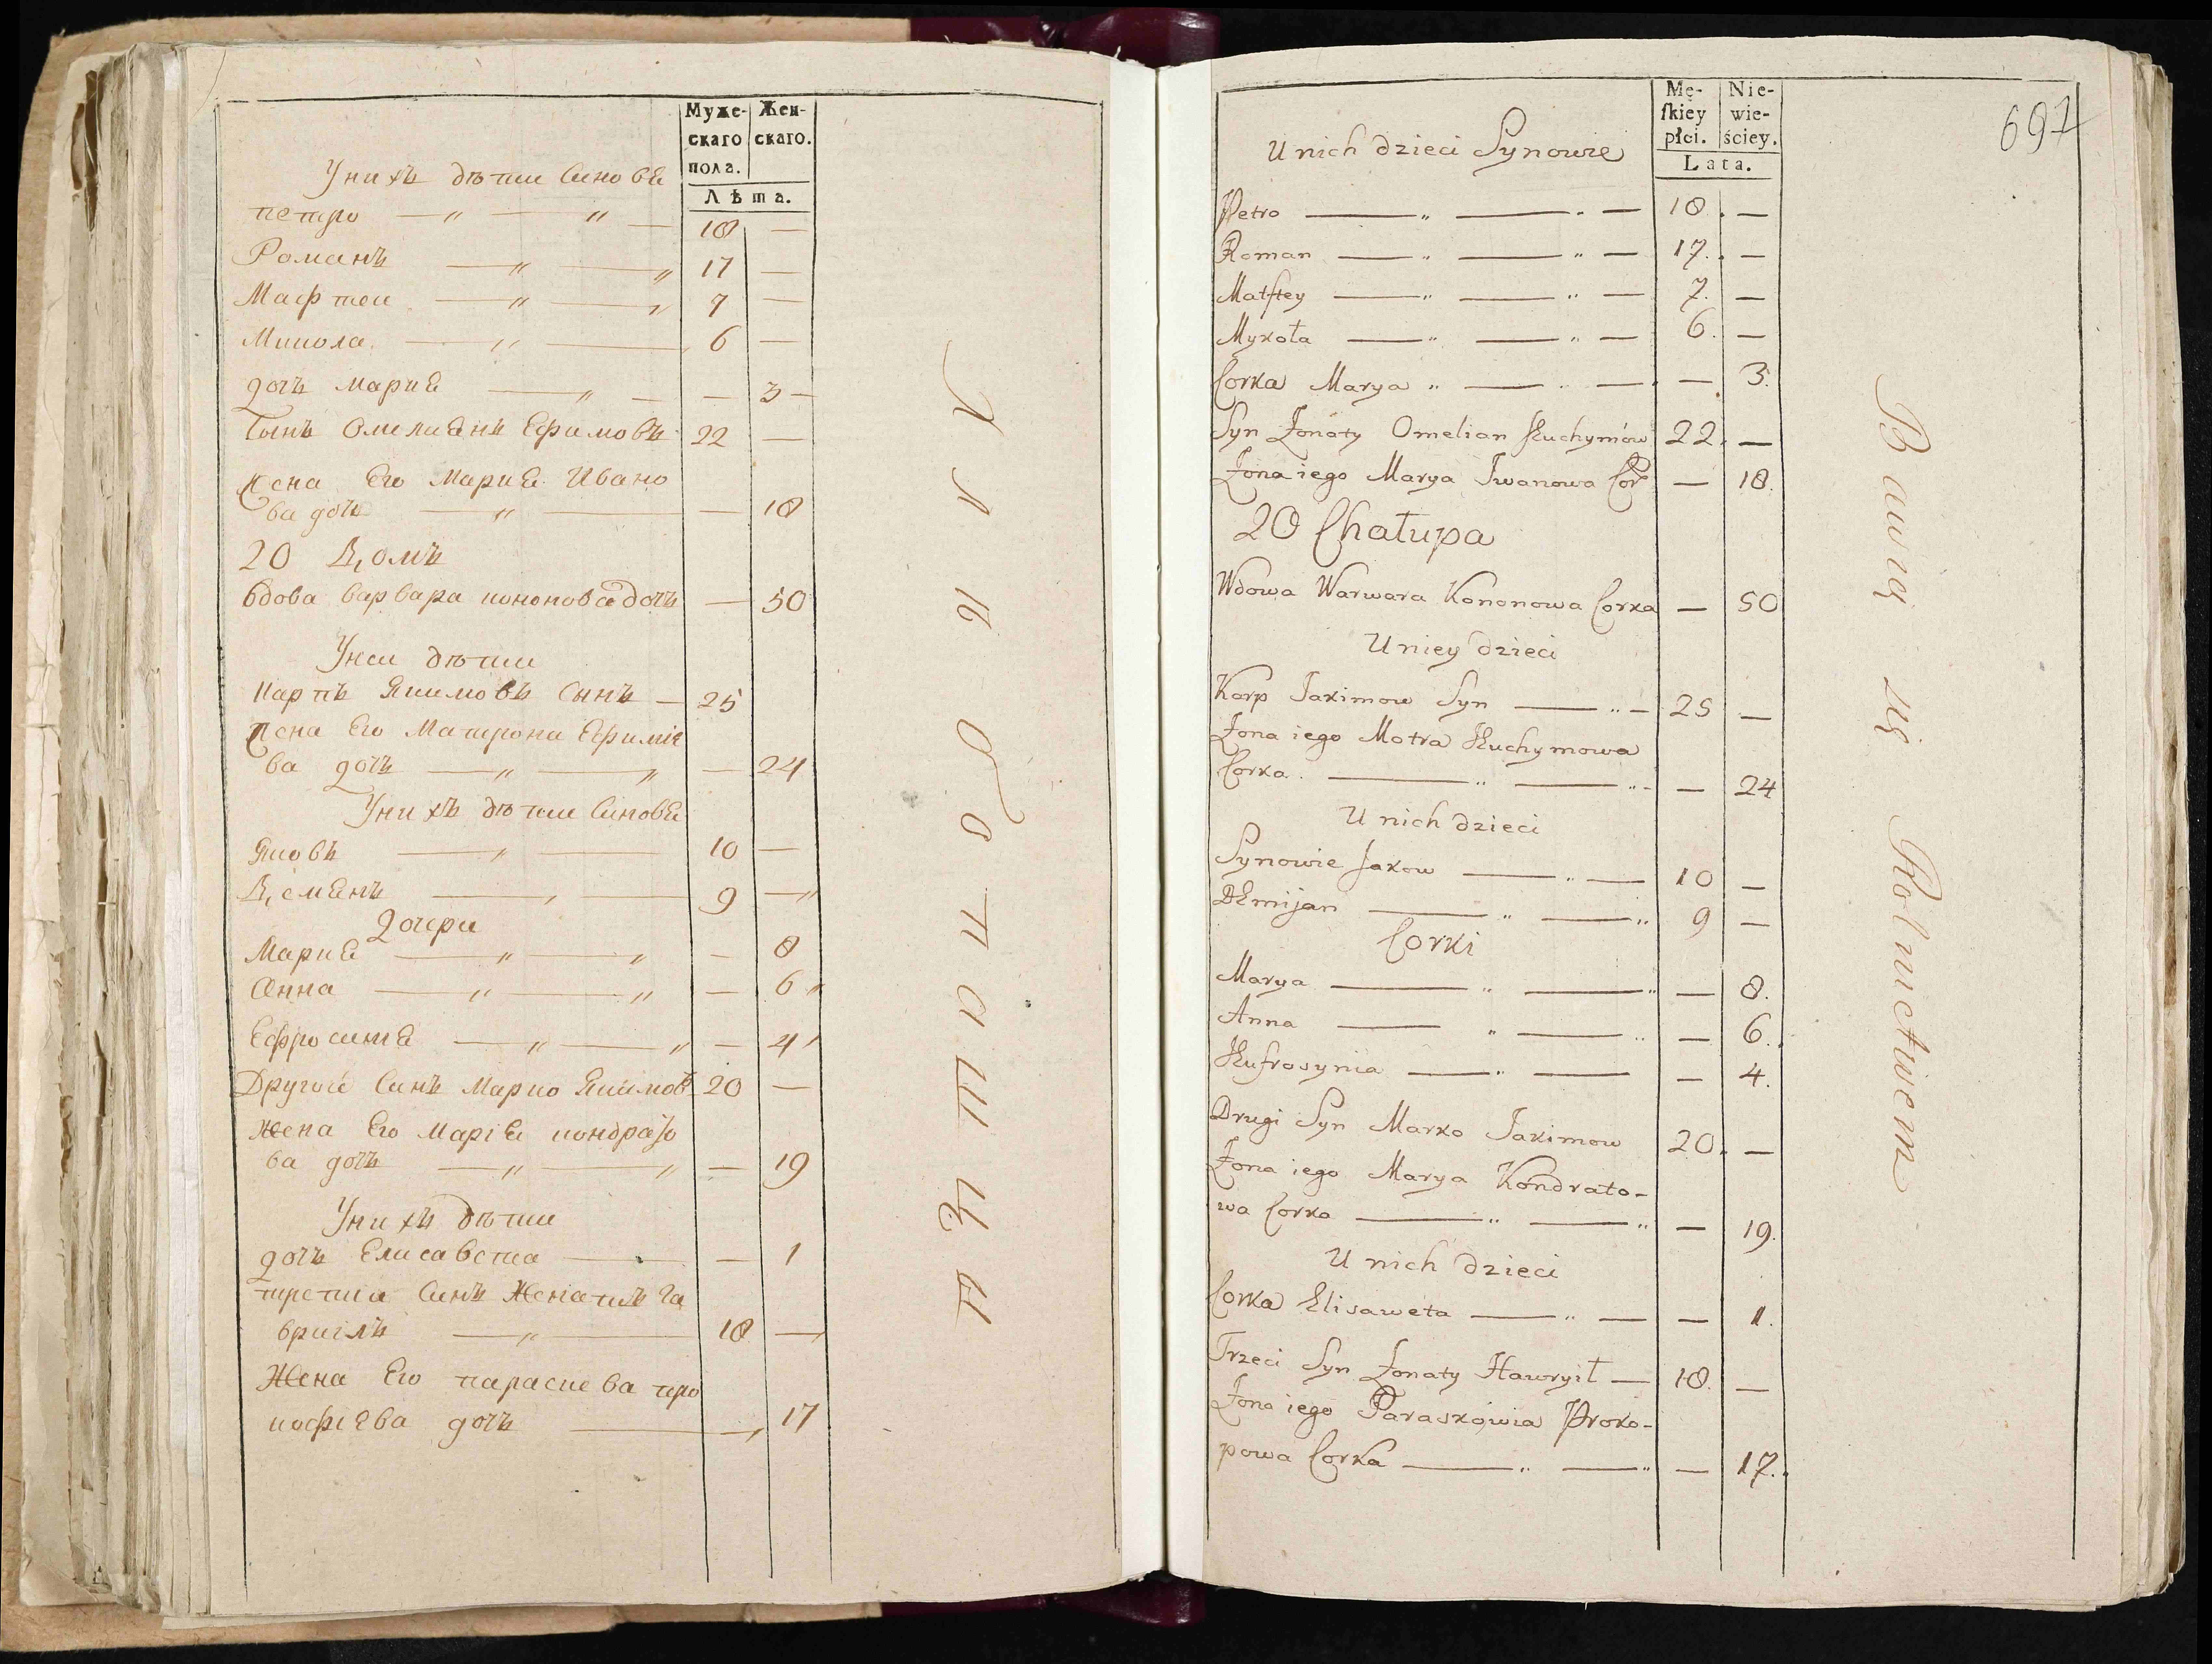 Муже-
скаго
пола.
Жен-
скаго.
Лѣта.
Унихъ дѣти Синове
петро — „ — „ — 18 —
Романъ — „ — „ 17 —
Мафтеи — „ — „ 7 —
Микола — „ — 6 —
дочъ Марие — „ — — 3 —
Сынъ Омелиенъ Ефимовъ 22 —
жена Его Марие Ивано
ва дочъ — „ — — 18
20 Домъ
вдова варвара кононова дочъ — 50
Унеи дѣти
Карпъ Якимовъ Сынъ — 25
жена Его Матрона Ефимие
ва дочъ — „ — „ — 24
Унихъ дѣти Синове
Яковъ — „ — 10 —
Деменъ — „ — 9 — „
Дочери
Марие — „ — „ — 8
Анна — „ — „ — 6 „
Ефросиние — „ — „ — 4 „
Другой Синъ Марко Якимовъ 20 —
жена Его Маріе кондрато
ва дочъ — „ — „ — 19
Унихъ дѣти
дочъ Елисавета — — 1
третии Синъ Женатъ Га
врилъ — „ — 18 —
Жена Его параскева про
кофіева дочъ — — „ 17
Хлѣбопашци
697
Mę-
ſkiey
płci.
Nie-
wie-
ściey.
Lata.
U nich dzieci Synowie
Petro — „ — „ — 18. —
Roman — „ — „ — 17. —
Matftey — „ — „ — 7. —
Mykoła — „ — „ — 6. —
Corka Marya „ — „ — — 3.
Syn Żonaty Omelian Euchymów 22. —
Żona iego Marya Iwanowa Cor — 18.
20 Chałupa
Wdowa Warwara Kononowa Corka — 50
U niey dzieci
Karp Jakimow Syn — „ — 25 —
Żona iego Motra Euchymowa
Corka. — „ — „ - — 24
U nich dzieci
Synowie Jakow — „ — 10 —
Demijan — „ — „ 9 —
Corki
Marya — „ — „ — 8.
Anna — „ — „ — 6.
Eufrosynia — „ — — 4.
Drugi Syn Marko Jakimow 20. —
Żona iego Marya Kondrato-
wa Corka — „ — „ — 19.
U nich dzieci
Corka Elisaweta — „ — — 1.
Trzeci Syn Żonaty Hawrył — 18. —
Żona iego Paraskowia Proko-
powa Corka — „ — „ — 17.
Bawią się Rolnictwem